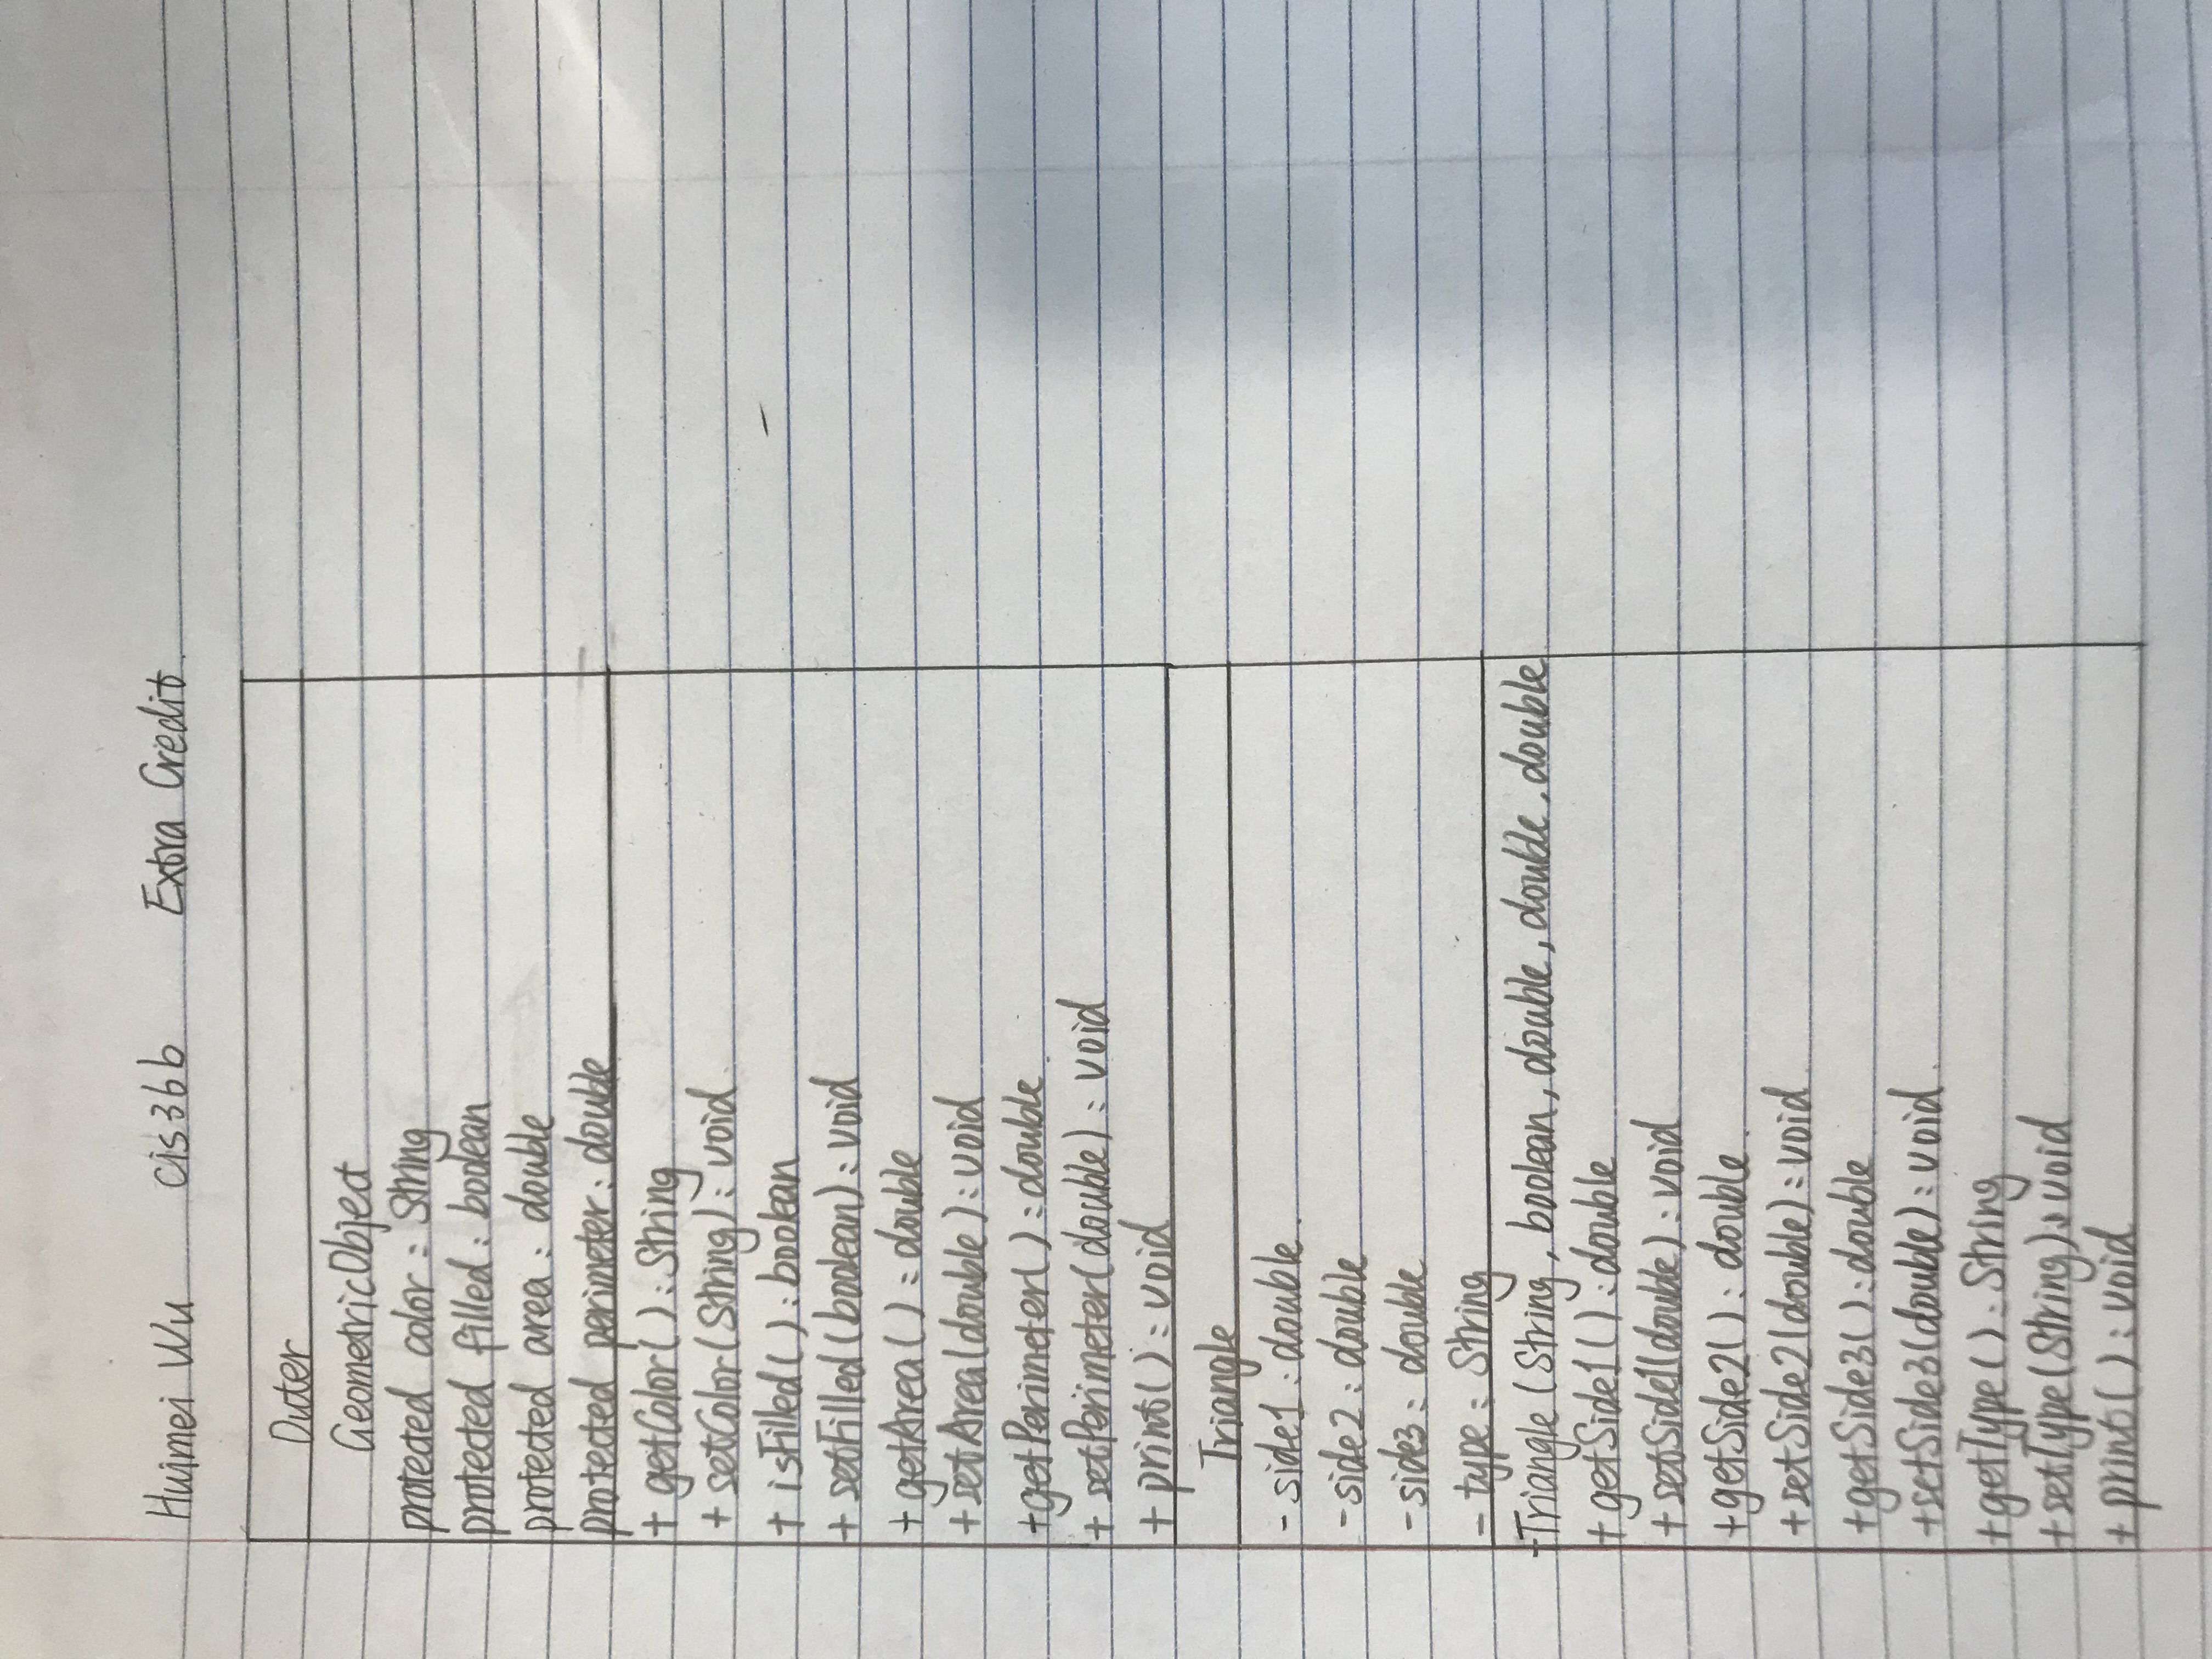 Huimei Wu cis36b Extra Credit.
Outer
GeometricObject
protected color : String
protected filled : boolean
protected area : double
protected perimeter : double
+ getColor( ) : String
+ setColor(String) : void
+ isFilled( ) : boolean
+ setFilled (boolean) : void
+ getArea( ) : double
+ setArea(double) : void
+ getPerimeter( ) : double
+ setPerimeter(double) : void
+ print( ) : void
Triangle
- side1 : double
- side2 : double
- side3 : double
- type : String
+Triangle (String, boolean, double, double, double
+ getSide1( ) : double
+ setSide1(double) : void
+ getSide2( ) : double
+ setSide2(double) : void
+ getSide3( ) : double
+ setSide3(double) : void
+ getType( ) : String
+ setType(String) : void
+ print( ) : void